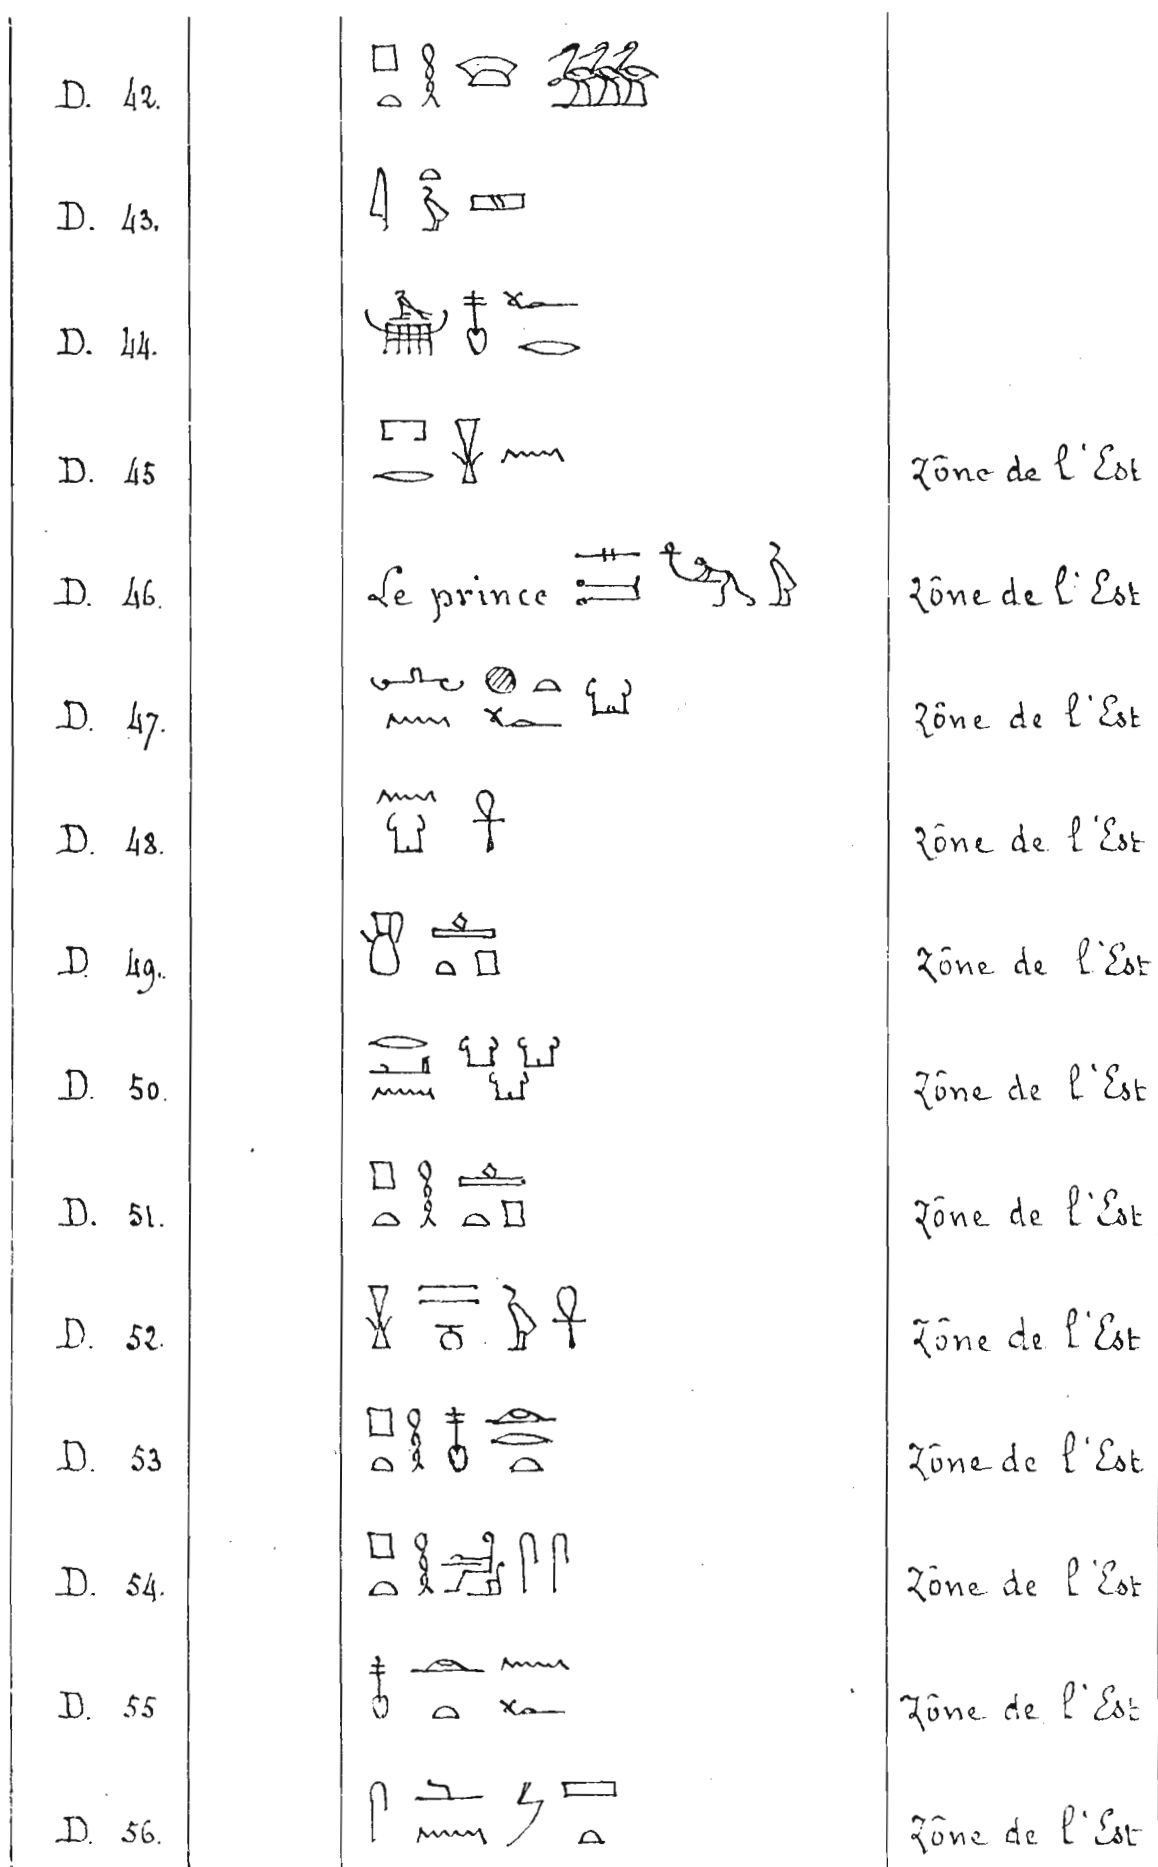 D. 42.
D. 43.
D. 44.
D. 45 𓉐𓂋𓌢𓈖 Zône de l'Est
D. 46. Le prince Zône de l'Est
D. 47. 𓂜𓈖𓐍𓏏𓆑𓂓 Zône de l'Est
D. 48. 𓈖𓂓𓋹 Zône de l'Est
D. 49. 𓎸𓊵𓏏𓊪 Zône de l'Est
D. 50. Zône de l'Est
D. 51. 𓊪𓏏𓎛𓊵𓏏𓊪 Zône de l'Est
D. 52. Zône de l'Est
D. 53 𓊪𓏏𓎛𓄤𓁹𓂋𓏏 Zône de l'Est
D. 54. Zône de l'Est
D. 55 𓄤𓁹𓏏𓈖𓆑 Zône de l'Est
D. 56. Zône de l'Est